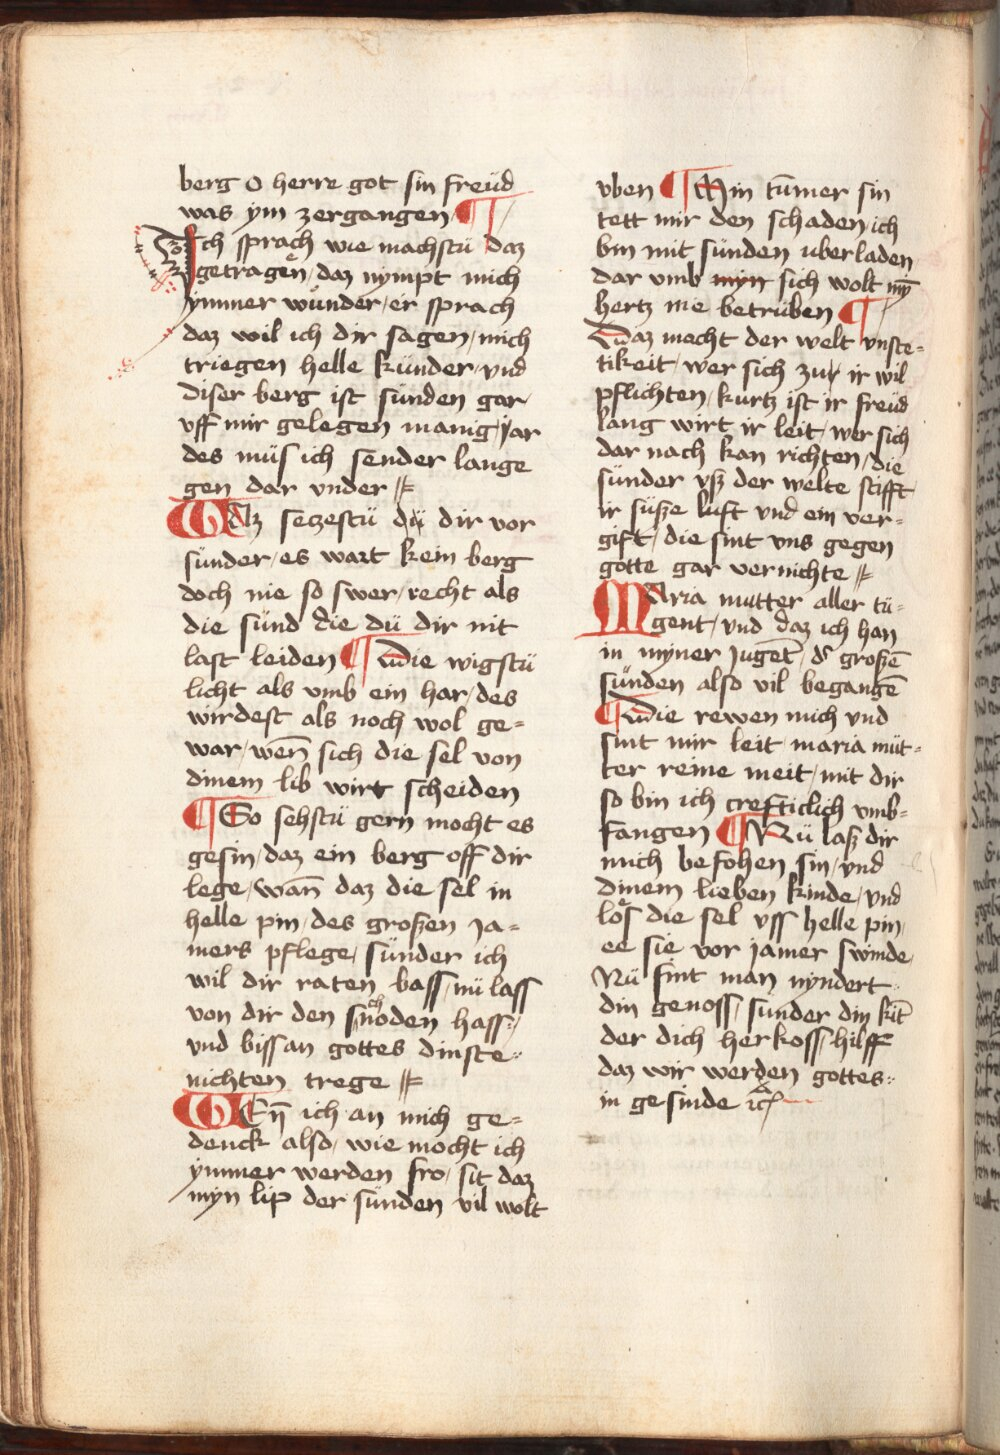 berg O herre got sin freüd
was ym zergangen ¶
Ich sprach wie machstü daz
getragen / daz nympt mich
ymmer wunder / er sprach
daz wil ich dir sagen / mich
triegen helle künder / vnd
diser berg ist sünden gar /
vff mir gelegen manig jar
des müs ich sender lange
gen dar vnder //
WAz seczestü dü dir vor
sünder / es wart kein berg
doch nie so swer / recht als
die sünd die dü dir nit
last leiden ¶ Die wigstü
licht als vmb ein har / des
wirdest als noch wol ge=
war / weñ sich die sel von
dinem lib wirt scheiden
¶ So sehstü gern mocht es
gesin / daz ein berg off dir
lege / wañ daz die sel in
helle pin / des großen Ja=
mers pflege / sünder ich
wil dir raten bass / nü lass
von dir den snöden hass /
vnd biss an gottes dinste
nichten trege //
WEn̄ ich an mich ge=
denck also / wie mocht ich
ymmer werden fro / sit daz
myn lip der sünden vil wolt
vben ¶ Min tūmer sin
tett mir den schaden ich
bin mit sünden uberladen
dar vmb myn sich wolt mȳ
hertz nie betrüben ¶
Waz macht der welt vnste=
tikeit / wer sich zu ir wil
pflichten / kurtz ist ir freüd
lang wirt ir leit / wer sich
dar nach kan richten / die
sünder vß der welte stifft
ir süße luft vnd ein ver=
gift / die sint vns gegen
gotte gar vernichte //
MAria mutter aller tü=
gent / vnd daz ich han
in myner Jugēt / d' großē
sünden also vil begangē
¶ Die rewen mich vnd
sint mir leit / maria müt=
ter reine meit / mit dir
so bin ich crefticlich vmb=
fangen ¶ Nü laß dir
mich befohen sin / vnd
dinem lieben kinde / vnd
lös die sel vss helle pin /
ee sie vor jamer swinde /
Nü sint man nyndert
din genoss / sunder din kīt
der dich herkoss / hilff
daz wir werden gottes
in gesinde ꝛc